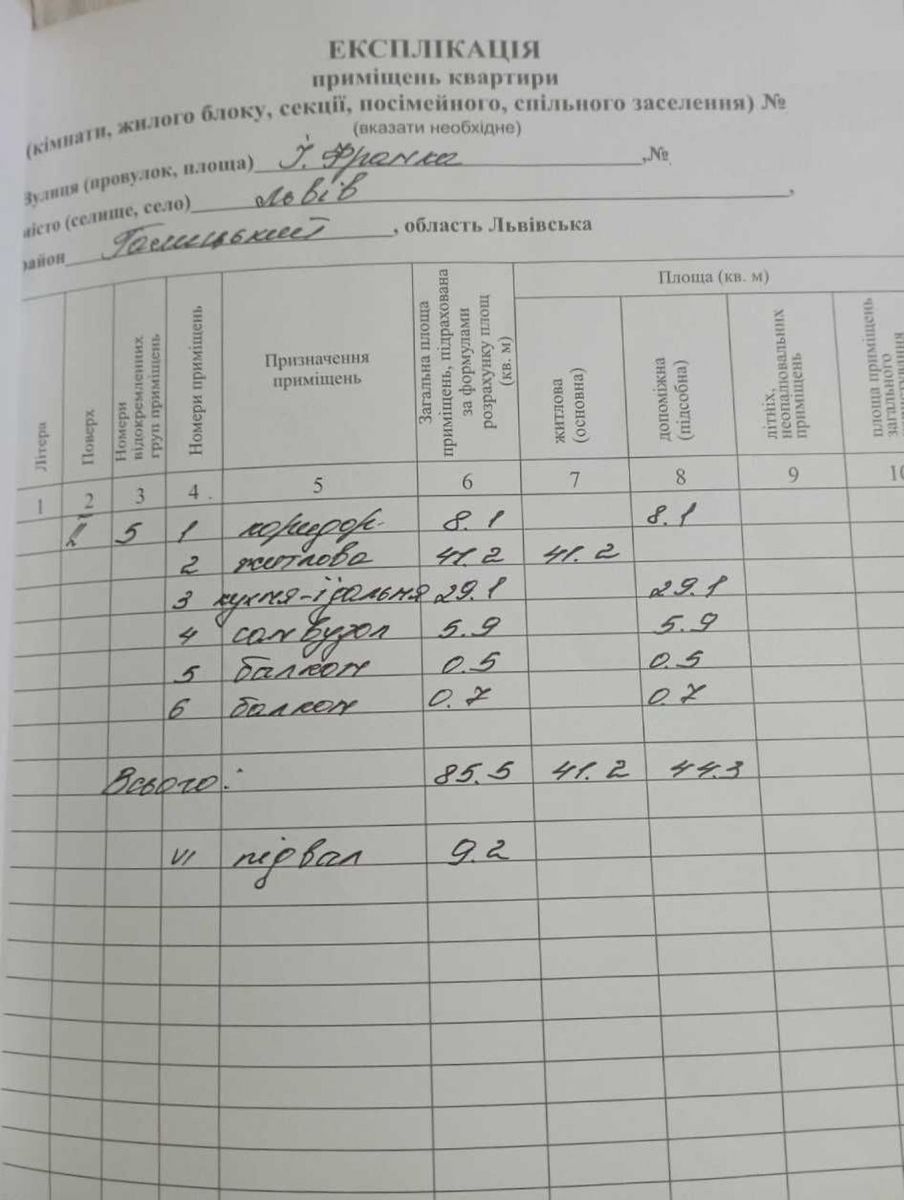 ЕКСПЛІКАЦІЯ
приміщень квартири
(кімнати, жилого блоку, секції, посімейного, спільного заселення) №
(вказати необхідне)
Вулиця (провулок, площа) І. Франка ,№
місто (селище, село) Львів ,
район Галицький , область Львівська
Літера
Поверх
Номери відокремленних груп приміщень
Номери приміщень
Призначення приміщень
Загальна площа приміщень, підрахована за формулами розрахунку площ (кв. м)
Площа (кв. м)
житлова (основна)
допоміжна (підсобна)
літніх, неопалювальних приміщень
площа приміщень загального
1 2 3 4 . 5 6 7 8 9 10
ІІ 5 1 коридор 8.1 8.1
2 житлова 41.2 41.2
3 кухня-їдальня 29.1 29.1
4 санвузол 5.9 5.9
5 балкон 0.5 0.5
6 балкон 0.7 0.7
Всього: 85.5 41.2 44.3
VI підвал 9.2